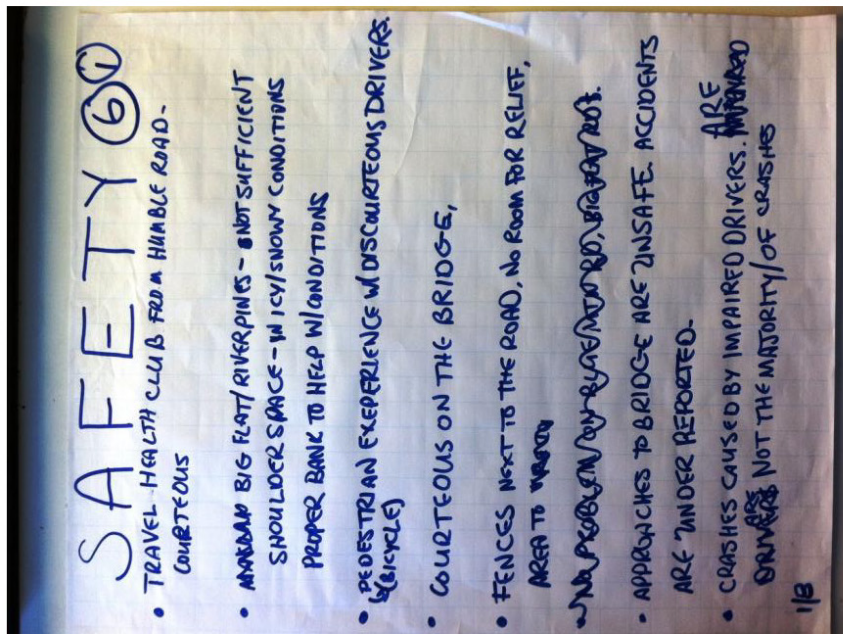 SAFETY 6 1
• TRAVEL HEALTH CLUB FROM HUMBLE ROAD -
COURTEOUS
• BIG FLAT/RIVERPINES - NOT SUFFICIENT
SHOULDER SPACE - W ICY/SNOWY CONDITIONS
PROPER BANK TO HELP W/CONDITIONS
• PEDESTRIAN EXEPERIENCE W/ DISCOURTEOUS DRIVERS.
&(BICYCLE)
• COURTEOUS ON THE BRIDGE,
• FENCES NEXT TO THE ROAD, NO ROOM FOR RELIEF,
AREA TO
• APPROACHES TO BRIDGE ARE UNSAFE. ACCIDENTS
ARE UNDER REPORTED.
• CRASHES CAUSED BY IMPAIRED DRIVERS. ARE
NOT THE MAJORITY/OF CRASHES
1/8